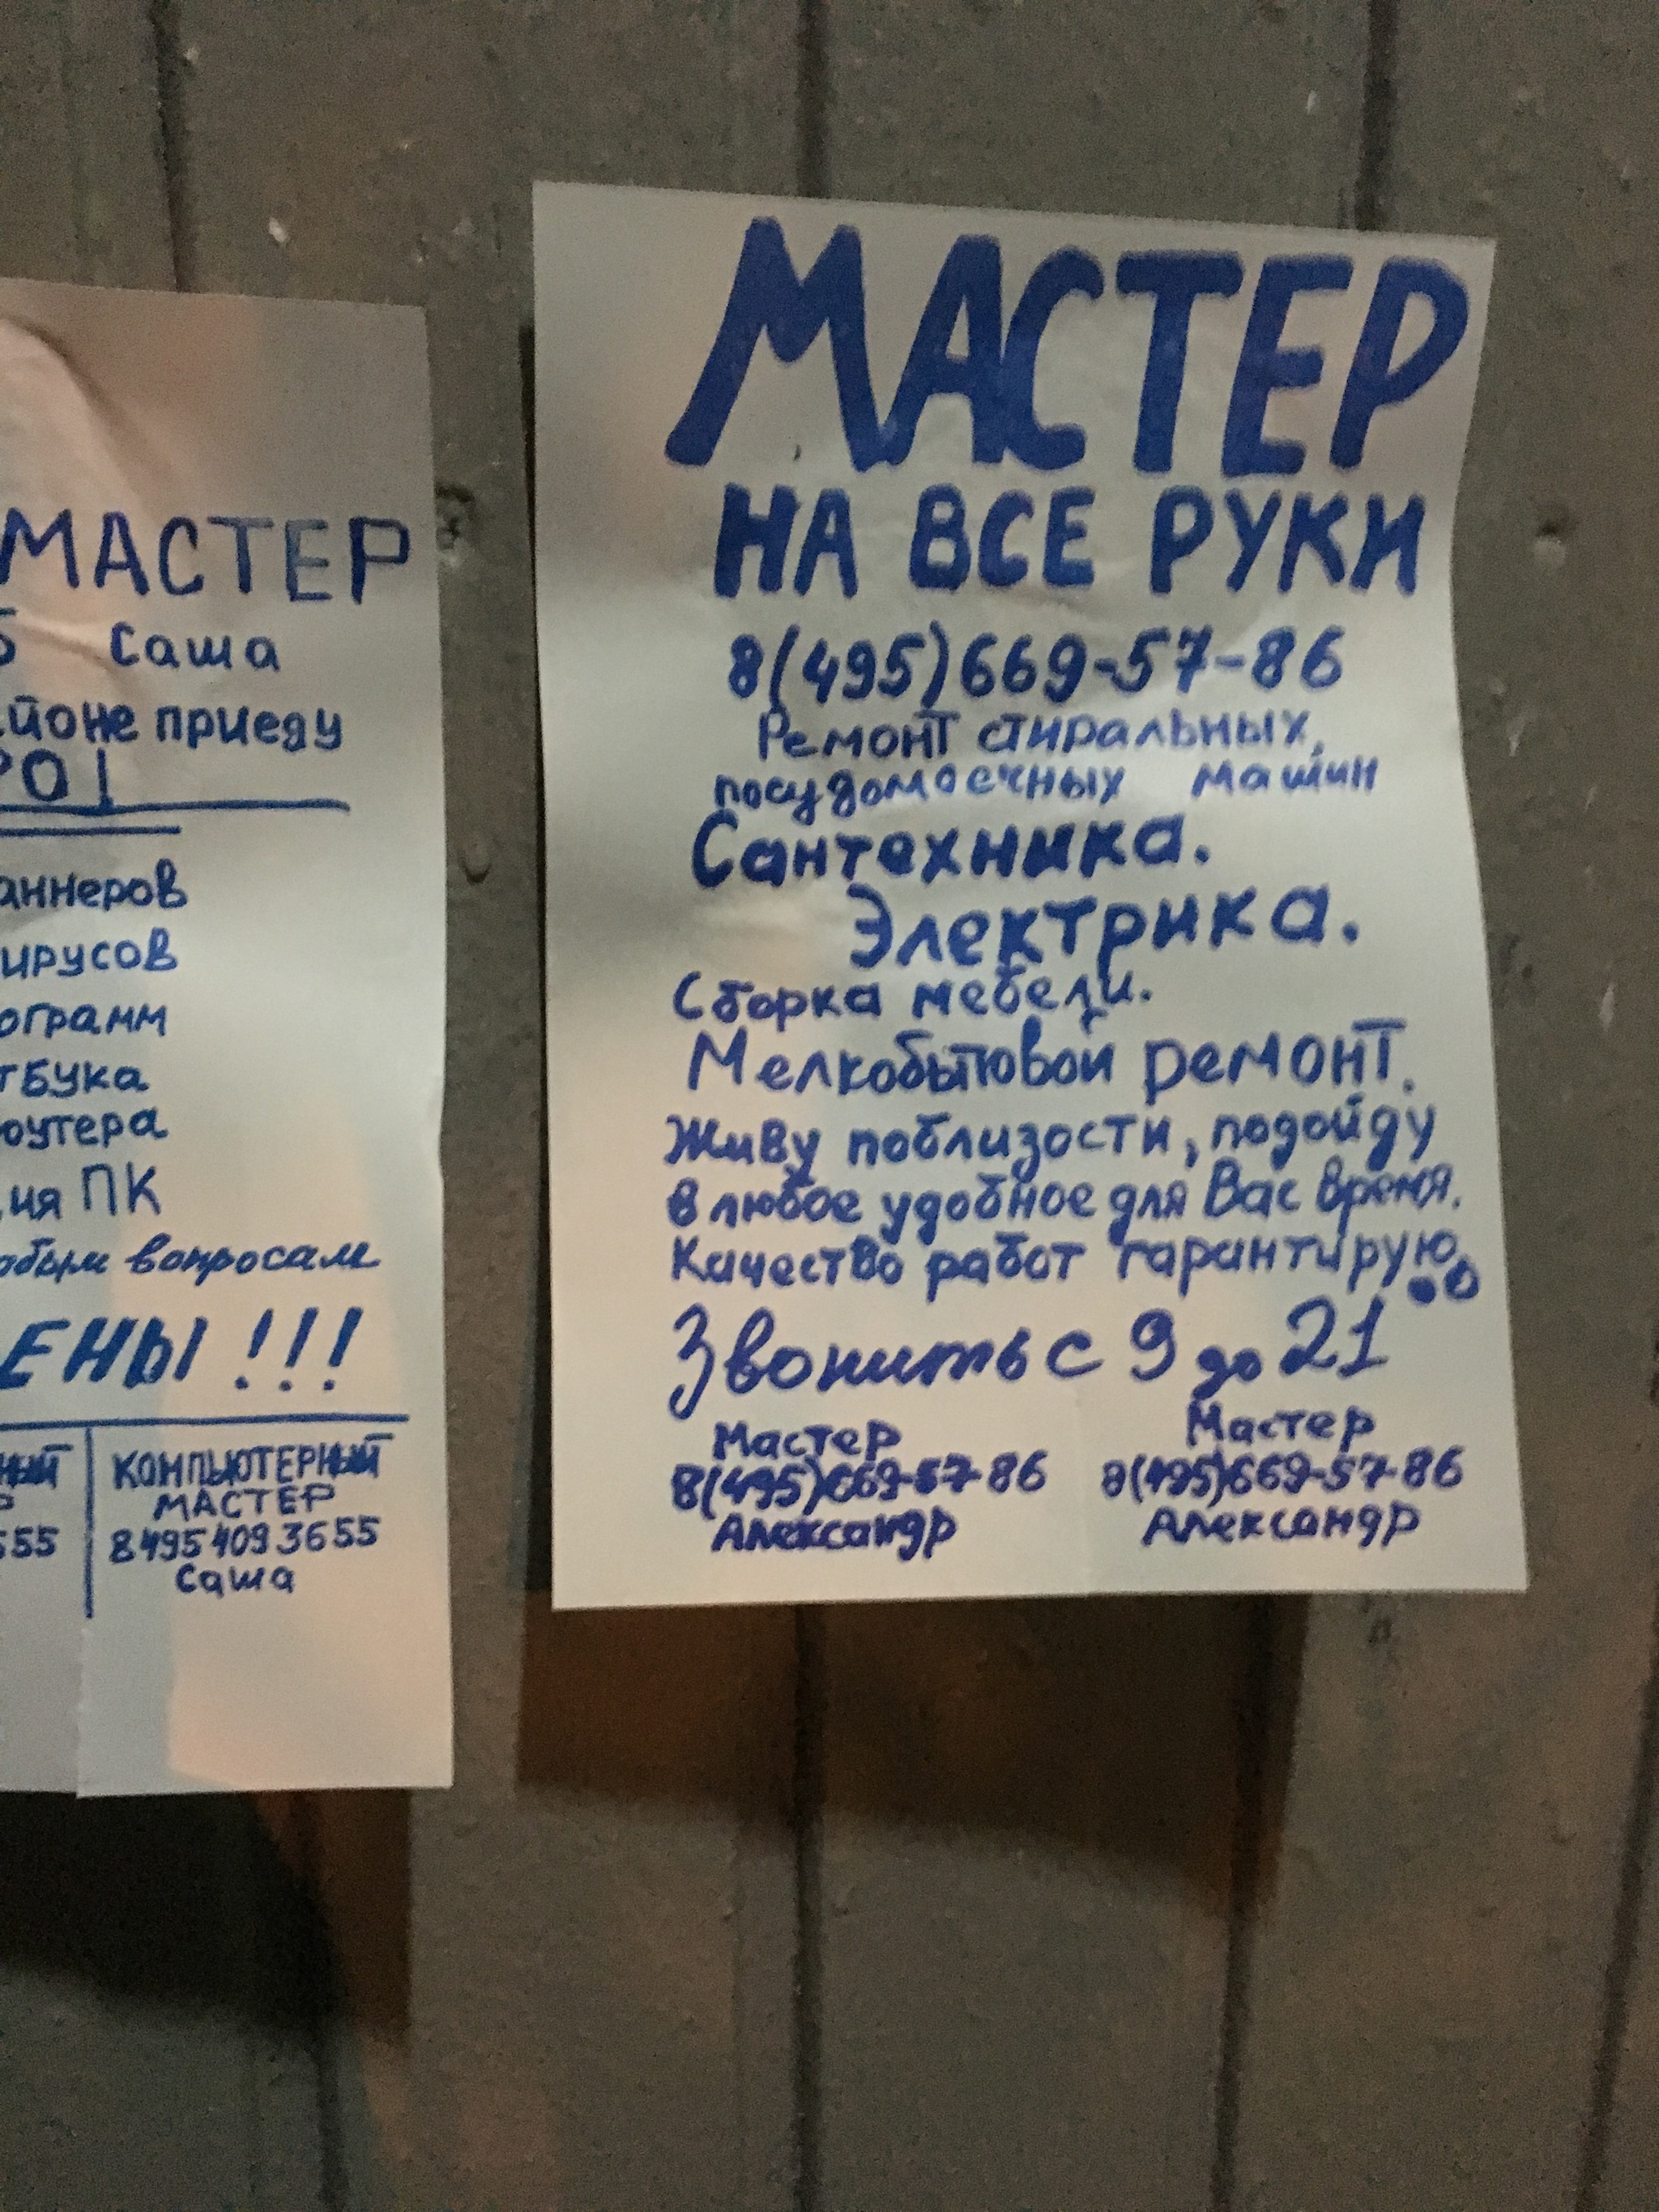 МАСТЕР
Саша
приеду
вопросам
!!!
КОМПЬЮТЕРНЫЙ
МАСТЕР
8 495 409 36 55
Саша
МАСТЕР
НА ВСЕ РУКИ
8(495)669-57-86
Ремонт стиральных,
посудомоечных машин
Сантехника.
Электрика.
Сборка мебели.
Мелкобытовой ремонт.
Живу поблизости, подойду
в любое удобное для Вас время.
Качество работ гарантирую
Звонить с 9 до 21
Мастер
8(495)669-57-86
Александр
Мастер
8(495)669-57-86
Александр